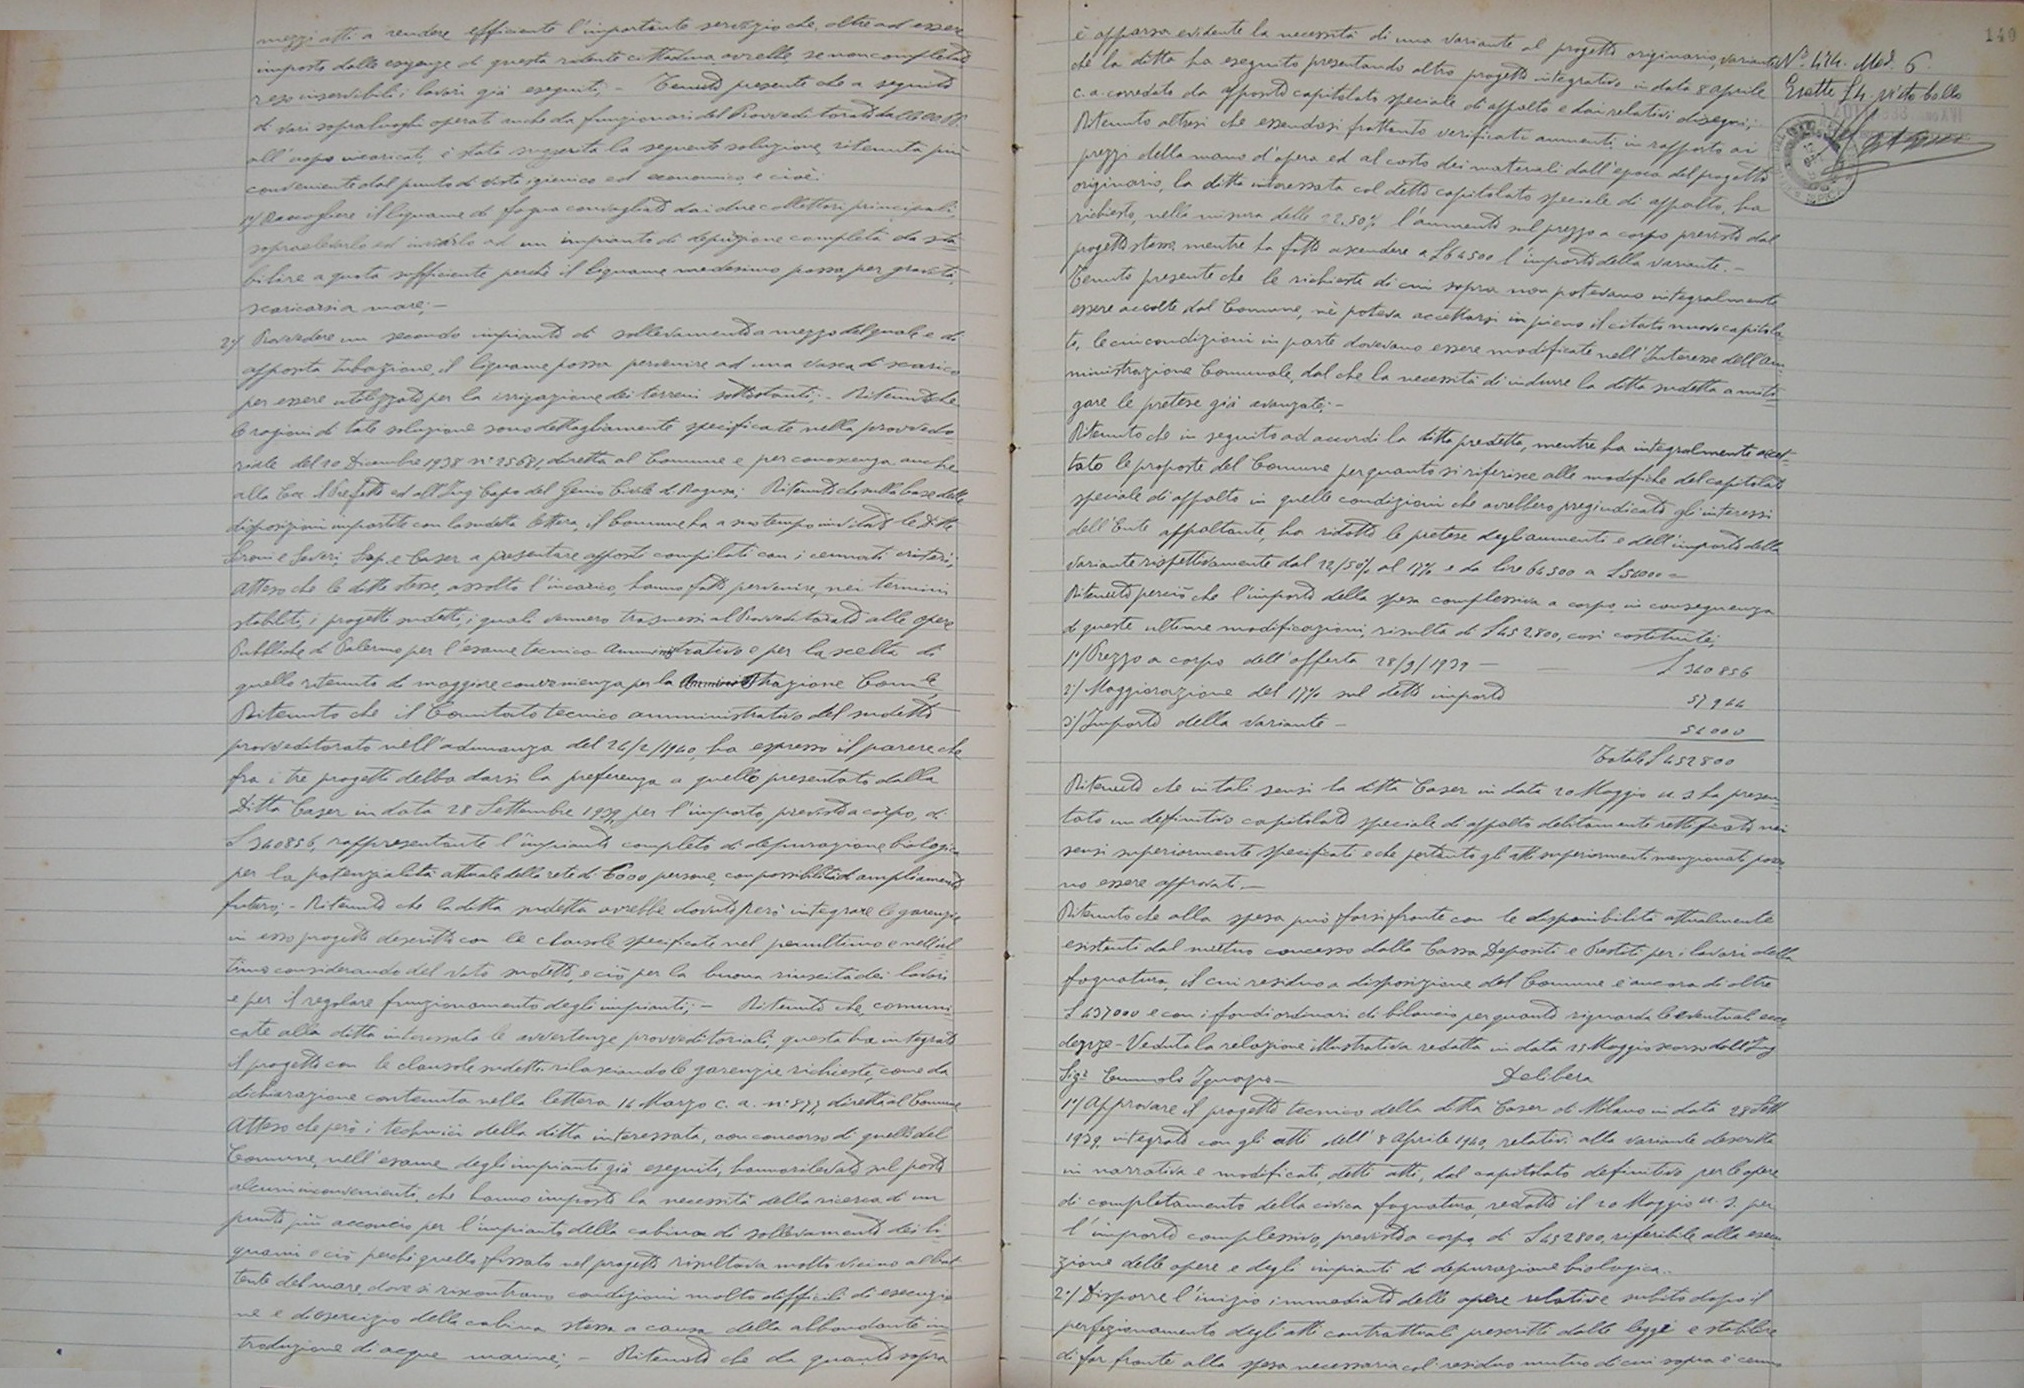 mezzi atti a rendere efficiente l'importante servizio che, oltre ad essere
imposto dalle esigenze di questa ridente cittadina avrebbe se non completato
reso inservibili i lavori già eseguiti; - Tenuto presente che a seguito
di vari sopraluoghi operati anche da funzionari del Provveditorato delle OO.PP.
all'uopo incaricati, è stata suggerita la seguente soluzione, ritenuta più
conveniente dal punto di vista igienico ed economico e cioè:
1°/ Raccogliere il liquame di fogna convogliato dai due collettori principali,
sopraelevarlo ed inviarlo ad un impianto di depurazione completa da sta
bilire a quota sufficiente perchè il liquame medesimo possa per gravità,
scaricarsi a mare; -
2°/ Provvedere un secondo impianto di sollevamento a mezzo del quale e di
apposita tubazione, il liquame possa pervenire ad una vasca di scarico
per essere utilizzato per la irrigazione dei terreni sottostanti; - Ritenuto che
le ragioni di tale soluzione sono dettagliatamente specificate nella provvedito
riale del 20 Dicembre 1938 n° 25681, diretta al Comune e per conoscenza anche
alla Ecc. il Prefetto ed all'Ing. Capo del Genio Civile di Ragusa; Ritenuto che sulla base delle
disposizioni impartite con la sudetta lettera, il Comune ha a suo tempo invitato le Ditte
e Severi, e Caser a presentare appositi compilati con i cennati criteri;
Atteso che le ditte stesse, assolto l'incarico, hanno fatto pervenire, nei termini
stabiliti, i progetti sudetti, i quali vennero trasmessi al Provveditorato alle opere
Pubbliche di Palermo per l'esame tecnico-Amministrativo e per la scelta di
quello ritenuto di maggiore convenienza per la Amministrazione Com.le
Ritenuto che il Comitato tecnico amministrativo del sudetto
provveditorato nell'adunanza del 24/2/1940, ha espresso il parere che
fra i tre progetti debba darsi la preferenza a quello presentato dalla
Ditta Caser in data 28 Settembre 1939, per l'importo, previsto a corpo, di
£ 340856, rappresentante l'impianto completo di depurazione biologica
per la potenzialità attuale della rete di 6000 persone, con possibilità di ampliamento
futuro; - Ritenuto che la ditta sudetta avrebbe dovuto però integrare le garenzie
in esso progetto descritte con le clausole specificate nel penultimo e nell'ul
timo considerando del voto sudetto, e ciò per la buona riuscita dei lavori
e per il regolare funzionamento degli impianti; - Ritenuto che, comuni
cate alla ditta interessata le avvertenze provveditoriali, questa ha integrato
il progetto con le clausole sudette rilasciando le garenzie richieste, come da
dichiarazione contenuta nella lettera 14 Marzo c. a. n° 877, diretta al Comune
Atteso che però i tecnici della ditta interessata, con concorso di quelli del
Comune, nell'esame degli impianti già eseguiti, hanno rilevato sul posto
alcuni inconvenienti, che hanno imposto la necessità della ricerca di un
punto più acconcio per l'impianto della cabina di sollevamento dei li
quami e ciò perchè quello fissato nel progetto risultava molto vicino al bat
tente del mare dove si riscontrano condizioni molto difficili di esecuzio
ne e di esercizio della cabina stessa a causa della abbondante in
troduzione di acque marine; - Ritenuto che da quanto sopra
140
è apparsa evidente la necessità di una variante al progetto originario, variante
che la ditta ha eseguito presentando altro progetto integrativo in data 8 aprile
c. a. corredato da apposito capitolato speciale di appalto e dai relativi disegni;
Ritenuto altresì che essendosi frattanto verificati aumenti in rapporto ai
prezzi della mano d'opera ed al costo dei materiali dall'epoca del progetto
originario, la ditta interessata col detto capitolato speciale di appalto, ha
richiesto, nella misura delle 22,50% l'aumento sul prezzo a corpo previsto dal
progetto stesso, mentre ha fatto ascendere a £ 64500 l'importo della variante. -
Tenuto presente che le richieste di cui sopra non potevano integralmente
essere accolte dal Comune, nè poteva accettarsi in pieno il citato nuovo capitola
to, le cui condizioni in parte dovevano essere modificate nell'Interesse dell'am
ministrazione Comunale, dal che la necessità di indurre la ditta sudetta a miti
gare le pretese già avanzate; -
Ritenuto che in seguito ad accordi la ditta predetta, mentre ha integralmente accet-
tato le proposte del Comune per quanto si riferisce alle modifiche del capitolato
speciale di appalto in quelle condizioni che avrebbero pregiudicato gli interessi
dell'Ente appaltante, ha ridotto le pretese degli aumenti e dell'importo della
variante rispettivamente dal 22,50% al 17% e da lire 64500 a £ 54000 =
Ritenuto perciò che l'importo della spesa complessiva a corpo, in conseguenza
di queste ultime modificazioni, risulta di £ 452800, così costituite;
1°/ Prezzo a corpo dell'offerta 28/9/1939 - £ 340856
2°/ Maggiorazione del 17% sul detto importo 57944
3°/ Importo della variante - 54000
Totale £ 452800
Ritenuto che in tali sensi la ditta Caser in data 20 Maggio u. s. ha presen
tato un definitivo capitolato speciale di appalto debitamente rettificato nei
sensi superiormente specificati e che pertanto gli atti superiormente menzionati posso
no essere approvati. -
Ritenuto che alla spesa può farsi fronte con le disponibilità attualmente
esistenti dal mutuo concesso dalla Cassa Depositi e Prestiti per i lavori della
fognatura, il cui residuo a disposizione del Comune è ancora di oltre
£ 437000 e con i fondi ordinari di bilancio per quanto riguarda le eventuali ecce
denze - Veduta la relazione illustrativa redatta in data 25 Maggio scorso dall'Ing
Sig.r Ignazio -
Delibera
1°/ Approvare il progetto tecnico della ditta Caser di Milano in data 28 Sett.
1939, integrato con gli atti dell'8 Aprile 1940, relativi alla variante descritta
in narrativa e modificati, detti atti, dal capitolato definitivo per le opere
di completamento della civica fognatura, redatto il 20 Maggio u. s. per
l'importo complessivo, previsto a corpo, di £ 452800, riferibile alla esecu
zione delle opere e degli impianti di depurazione biologica..
2°/ Disporre l'inizio immediato delle opere relative subito dopo il
perfezionamento degli atti contrattuali prescritti dalle leggi e stabilire
di far fronte alla spesa necessaria col residuo mutuo di cui sopra è cenno
N° 474. Mod. 6
Esatte £ 4. visto bollo